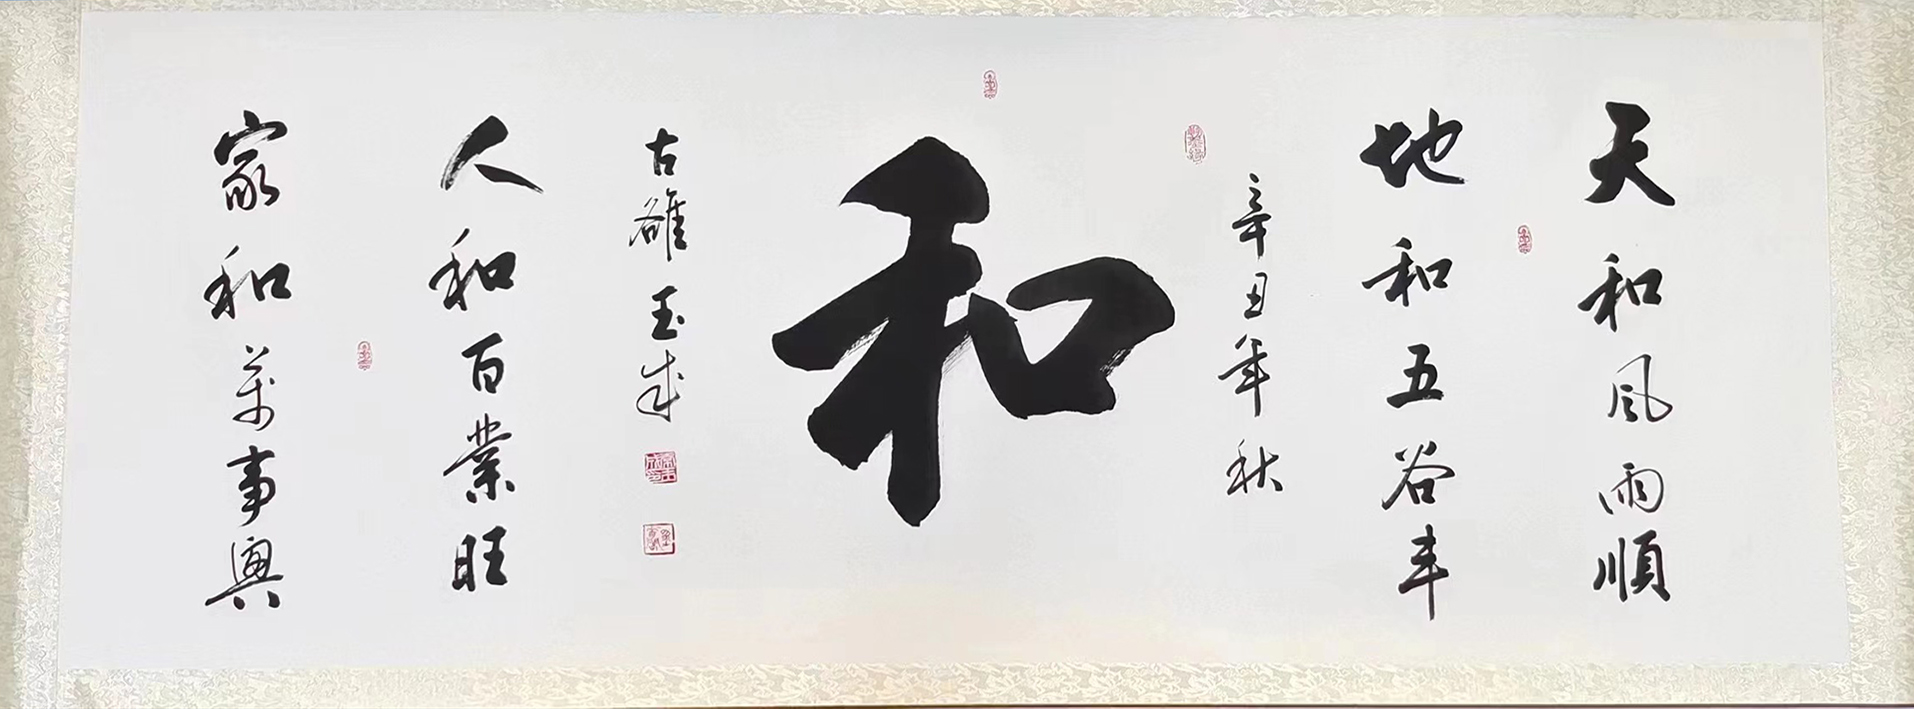 天和風雨順
地和五谷丰
辛丑年秋
和
古雒玉成
人和百業旺
家和萬事興